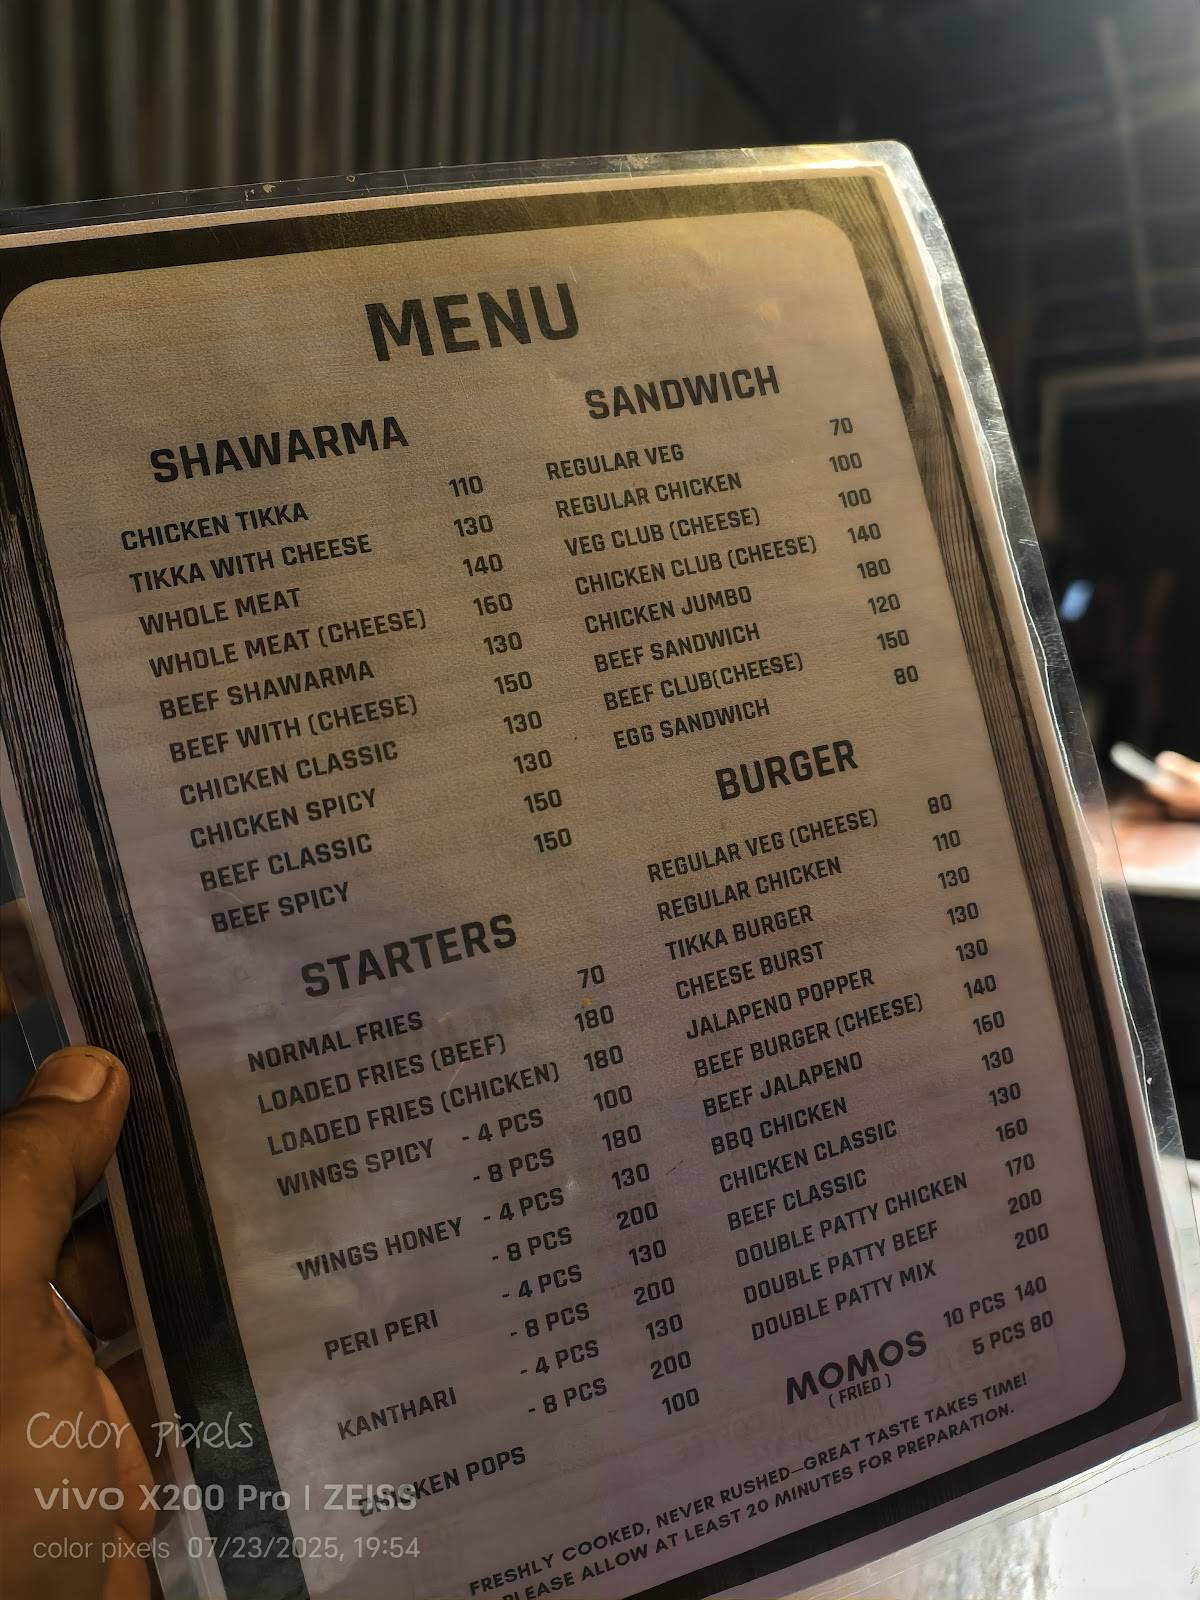 MENU
SHAWARMA
CHICKEN TIKKA 110
TIKKA WITH CHEESE 130
WHOLE MEAT 140
WHOLE MEAT (CHEESE) 160
BEEF SHAWARMA 130
BEEF WITH (CHEESE) 150
CHICKEN CLASSIC 130
CHICKEN SPICY 130
BEEF CLASSIC 150
BEEF SPICY 150
STARTERS
NORMAL FRIES 70
LOADED FRIES (BEEF) 180
LOADED FRIES (CHICKEN) 180
WINGS SPICY - 4 PCS 100
- 8 PCS 180
WINGS HONEY - 4 PCS 130
- 8 PCS 200
PERI PERI - 4 PCS 130
- 8 PCS 200
KANTHARI - 4 PCS 130
- 8 PCS 200
CHICKEN POPS 100
SANDWICH
REGULAR VEG 70
REGULAR CHICKEN 100
VEG CLUB (CHEESE) 100
CHICKEN CLUB (CHEESE) 140
CHICKEN JUMBO 180
BEEF SANDWICH 120
BEEF CLUB(CHEESE) 150
EGG SANDWICH 80
BURGER
REGULAR VEG (CHEESE) 80
REGULAR CHICKEN 110
TIKKA BURGER 130
CHEESE BURST 130
JALAPENO POPPER 130
BEEF BURGER (CHEESE) 140
BEEF JALAPENO 160
BBQ CHICKEN 130
CHICKEN CLASSIC 130
BEEF CLASSIC 160
DOUBLE PATTY CHICKEN 170
DOUBLE PATTY BEEF 200
DOUBLE PATTY MIX 200
MOMOS 10 PCS 140
(FRIED) 5 PCS 80
FRESHLY COOKED, NEVER RUSHED—GREAT TASTE TAKES TIME!
PLEASE ALLOW AT LEAST 20 MINUTES FOR PREPARATION.
Color pixels
vivo X200 Pro | ZEISS
color pixels 07/23/2025, 19:54